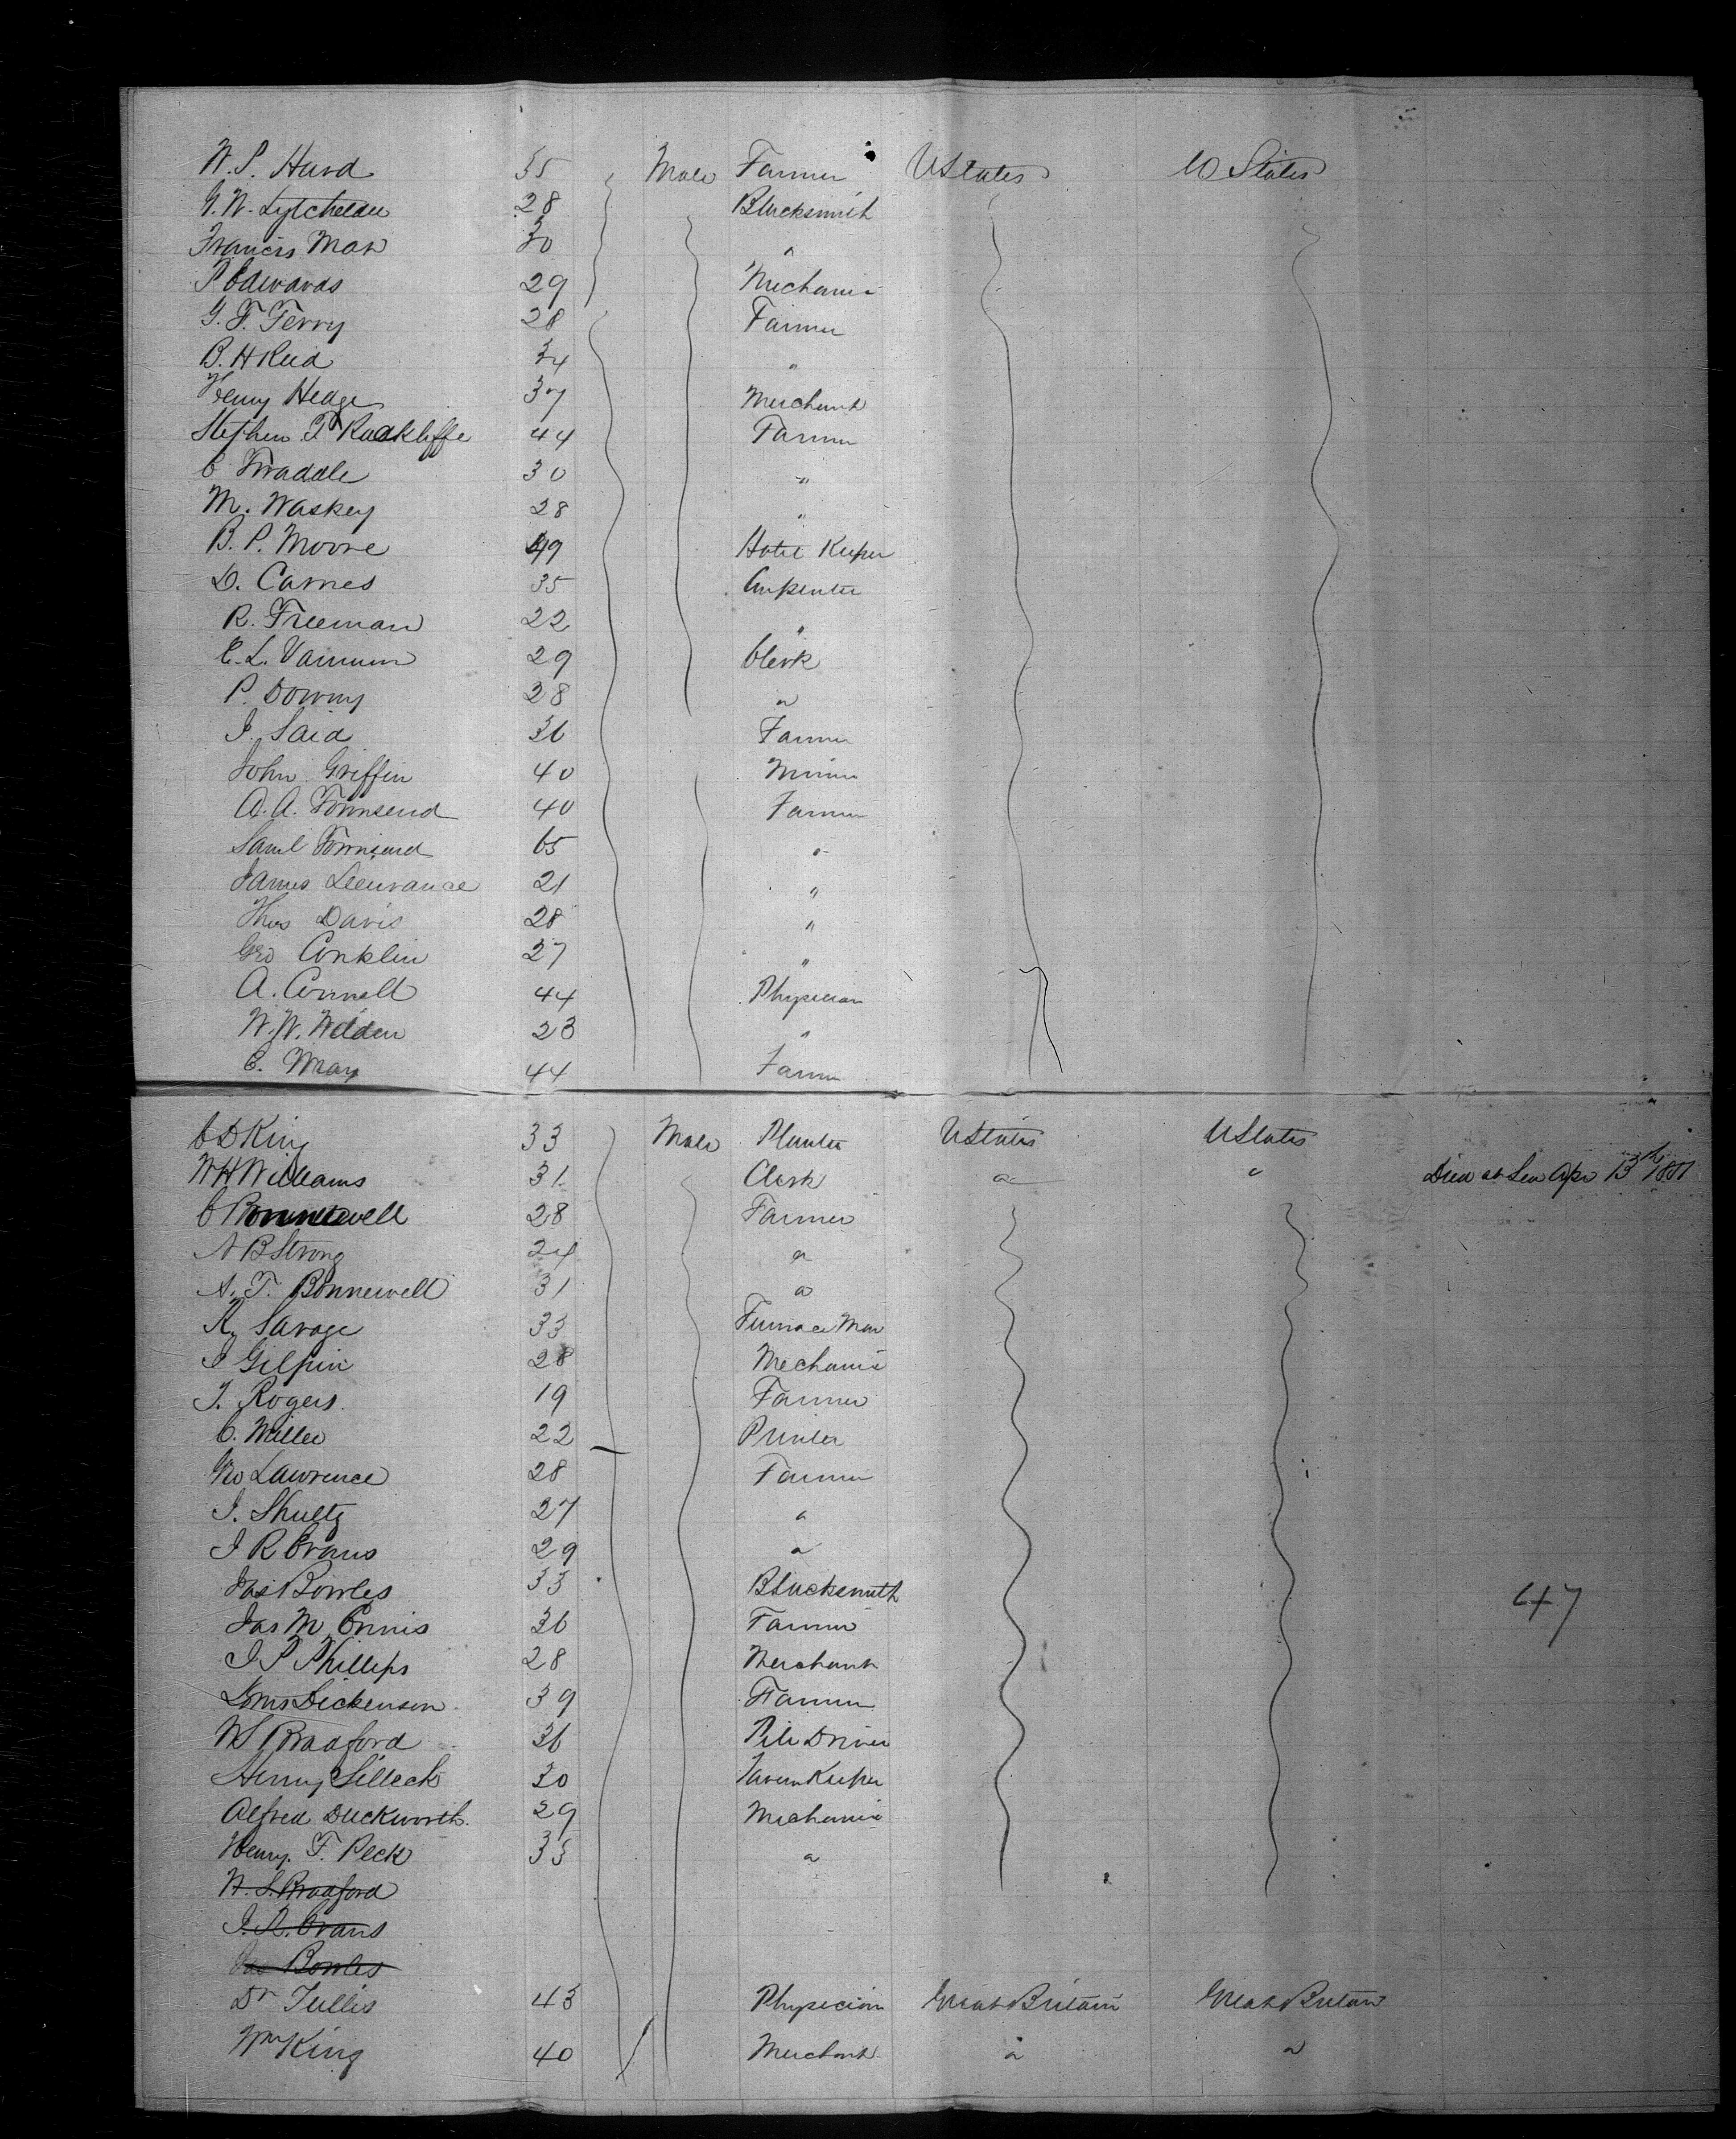 W. P. Hurd 35 Male Farmer UStates U States
G. W. 28 Blacksmith
Francis 30 "
P Edwards 29 Mechanic
G. F. Ferry 28 Farmer
B. H Reed 34 "
Henry Hedge 37 Merchant
Stephen T Rackliffe 44 Farmer
C Twaddle 30 "
M. Waskey 28 "
B. P. Moore 49 Hotel Keeper
D. Carnes 35 Carpenter
R. Freeman 22 "
E. L. Varnum 29 Clerk
P. Downy 28 "
J. Said 36 Farmer
John Griffin 40 Miner
A. A. Townsend 40 Farmer
Saml Townsend 65 "
James 21 "
Thos Davis 28 "
Geo Conklin 27 "
A. Connell 44 Physician
W. W. 23 "
C. Wray 44 Farmer
C D King 33 Male Planter UStates UStates
W H Williams 31 Clerk " " Died at Sea Apr 13th
C Bonnewell 28 Farmer
A B Strong 24 "
A. T. Bonnewell 31 "
R. Savage 33 Furnace Man
J Gilpin 28 Mechanic
T. Rogers. 19 Farmer
C. Miller 22 Printer
Geo Lawrence 28 Farmer
J. Shultz 27 "
J R Evans 29 "
Jas Bowles 33 Blacksmith
Jas M. Ennis 36 Farmer 47
J P Phillips 28 Merchant
Dickenson 39 Farmer
W S Bradford 36 Pile Driver
Henry Silleck 30 Tavern Keeper
Alfred Duckworth. 29 Mechanic
Henry. F. Peck 35 "
W. S. Bradford
J. R. Evans
Jas Bowles
Dr Tullis 43 Physician Great Britain Great Britain
Wm King 40 Merchant " "